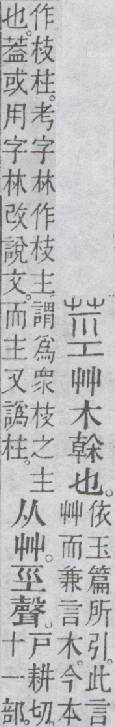 莖艸木榦也。
依玉篇所引。此言
艸而兼言木。今本
作枝柱。考字林作枝主。謂爲衆枝之主
也。蓋或用字林改說文。而主又譌柱。
从艸。巠聲。
戶耕切。
十一部。